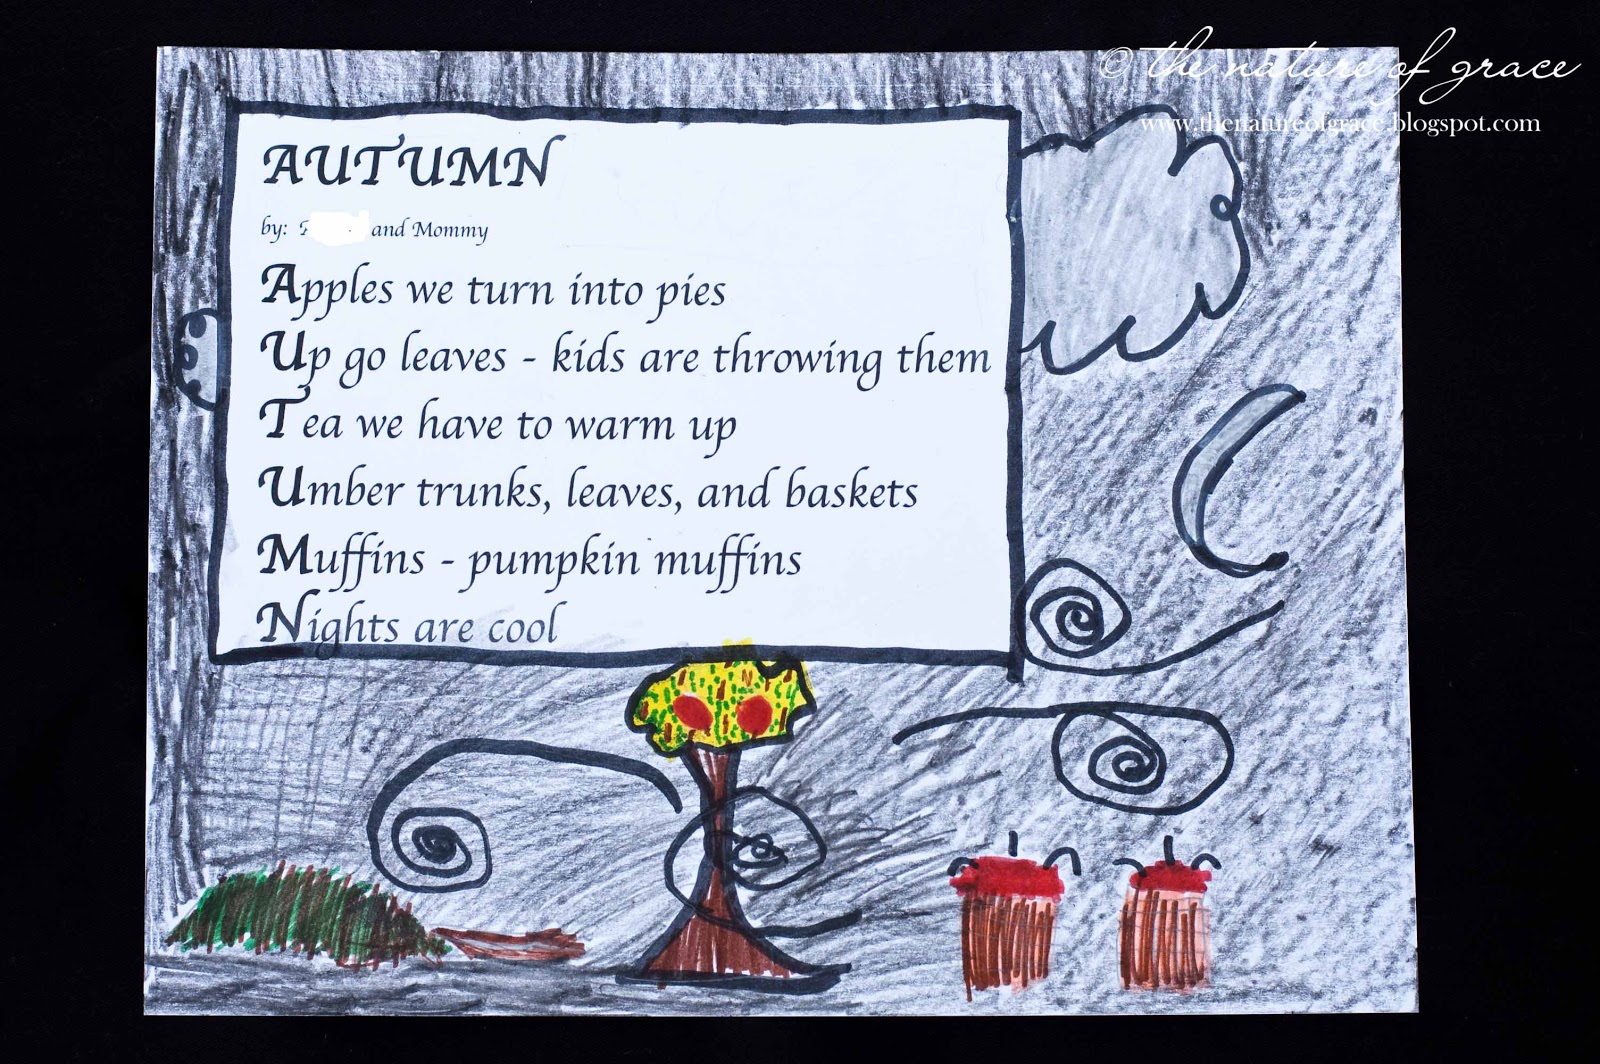 © the nature of grace
www.thenatureofgrace.blogspot.com
AUTUMN
by: and Mommy
Apples we turn into pies
Up go leaves - kids are throwing them
Tea we have to warm up
Umber trunks, leaves, and baskets
Muffins - pumpkin muffins
Nights are cool